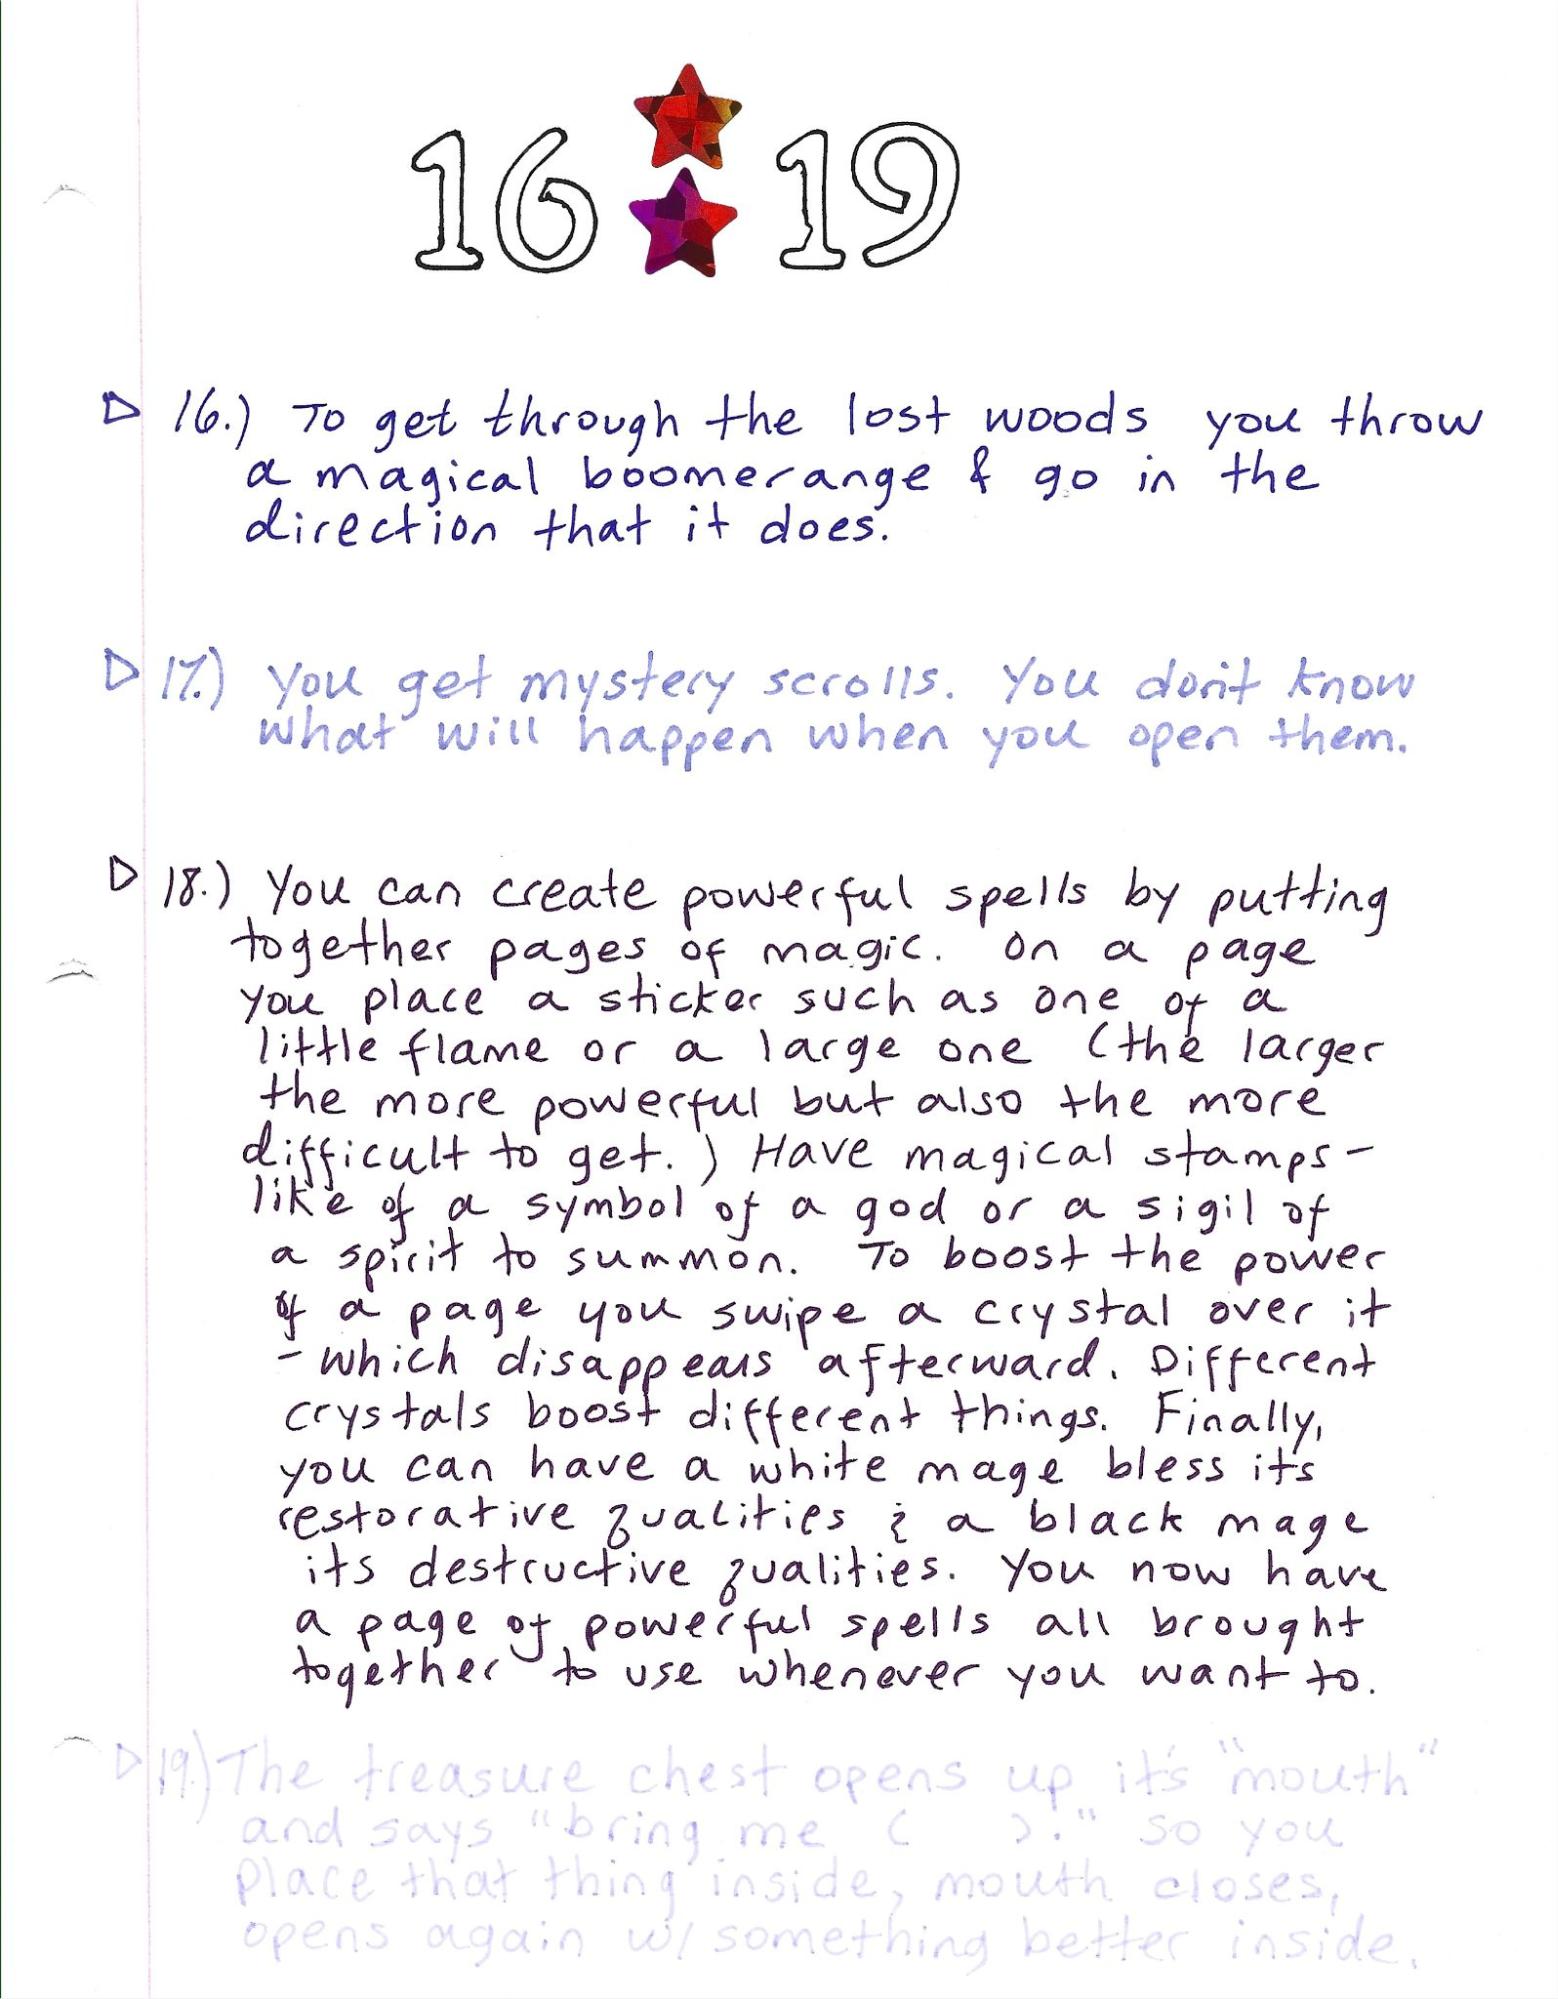 16 19
▷ 16.) To get through the lost woods you throw
a magical boomerange & go in the
direction that it does.
▷ 17.) You get mystery scrolls. You don't know
what will happen when you open them.
▷ 18.) You can create powerful spells by putting
together pages of magic. On a page
you place a sticker such as one of a
little flame or a large one (the larger
the more powerful but also the more
difficult to get.) Have magical stamps-
like of a symbol of a god or a sigil of
a spirit to summon. To boost the power
of a page you swipe a crystal over it
- which disappears afterward. Different
crystals boost different things. Finally,
you can have a white mage bless it's
restorative qualities & a black mage
its destructive qualities. You now have
a page of powerful spells all brought
together to use whenever you want to.
▷ 19.) The treasure chest opens up it's "mouth"
and says "bring me (     )." So you
place that thing inside, mouth closes,
opens again w/ something better inside.